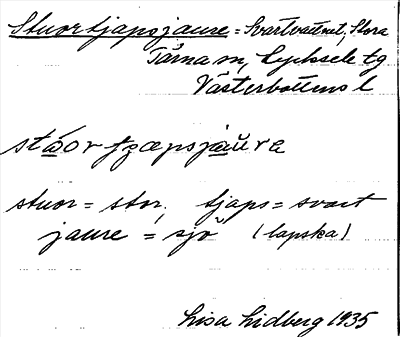 Stuortjapsjaure = Svartvattnet, Stora
Tärna sn, Lycksele tg
Västerbottens l
stáor tjzapsjaŭra
stuor = stor. tjaps = svart
jaure = sjö (lapska)
Lisa Lidberg 1935